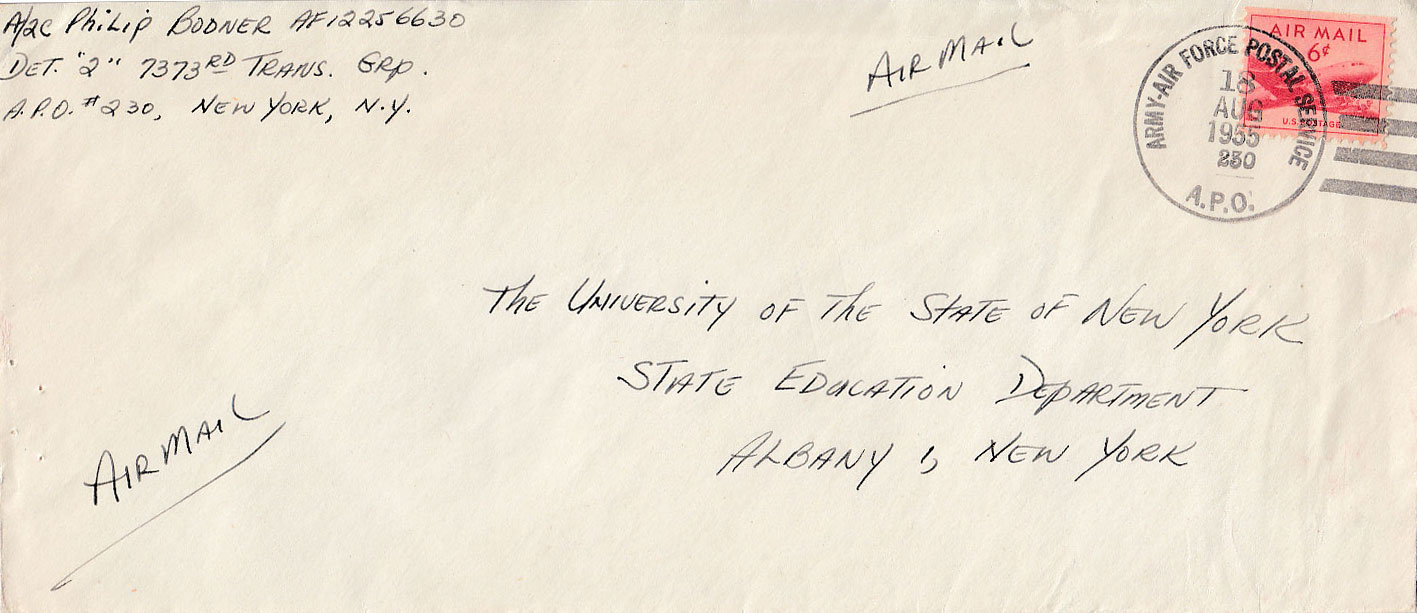 A/2C PHILIP BODNER AF12256630
DET. "2" 7373RD TRANS. GRP.
A.P.O. #230, NEW YORK, N.Y.
AIR MAIL
AIR MAIL
6¢
U.S. POSTAGE
ARMY-AIR FORCE POSTAL SERVICE
18
AUG
1955
230
A.P.O.
THE UNIVERSITY OF THE STATE OF NEW YORK
STATE EDUCATION DEPARTMENT
ALBANY 1, NEW YORK
AIR MAIL